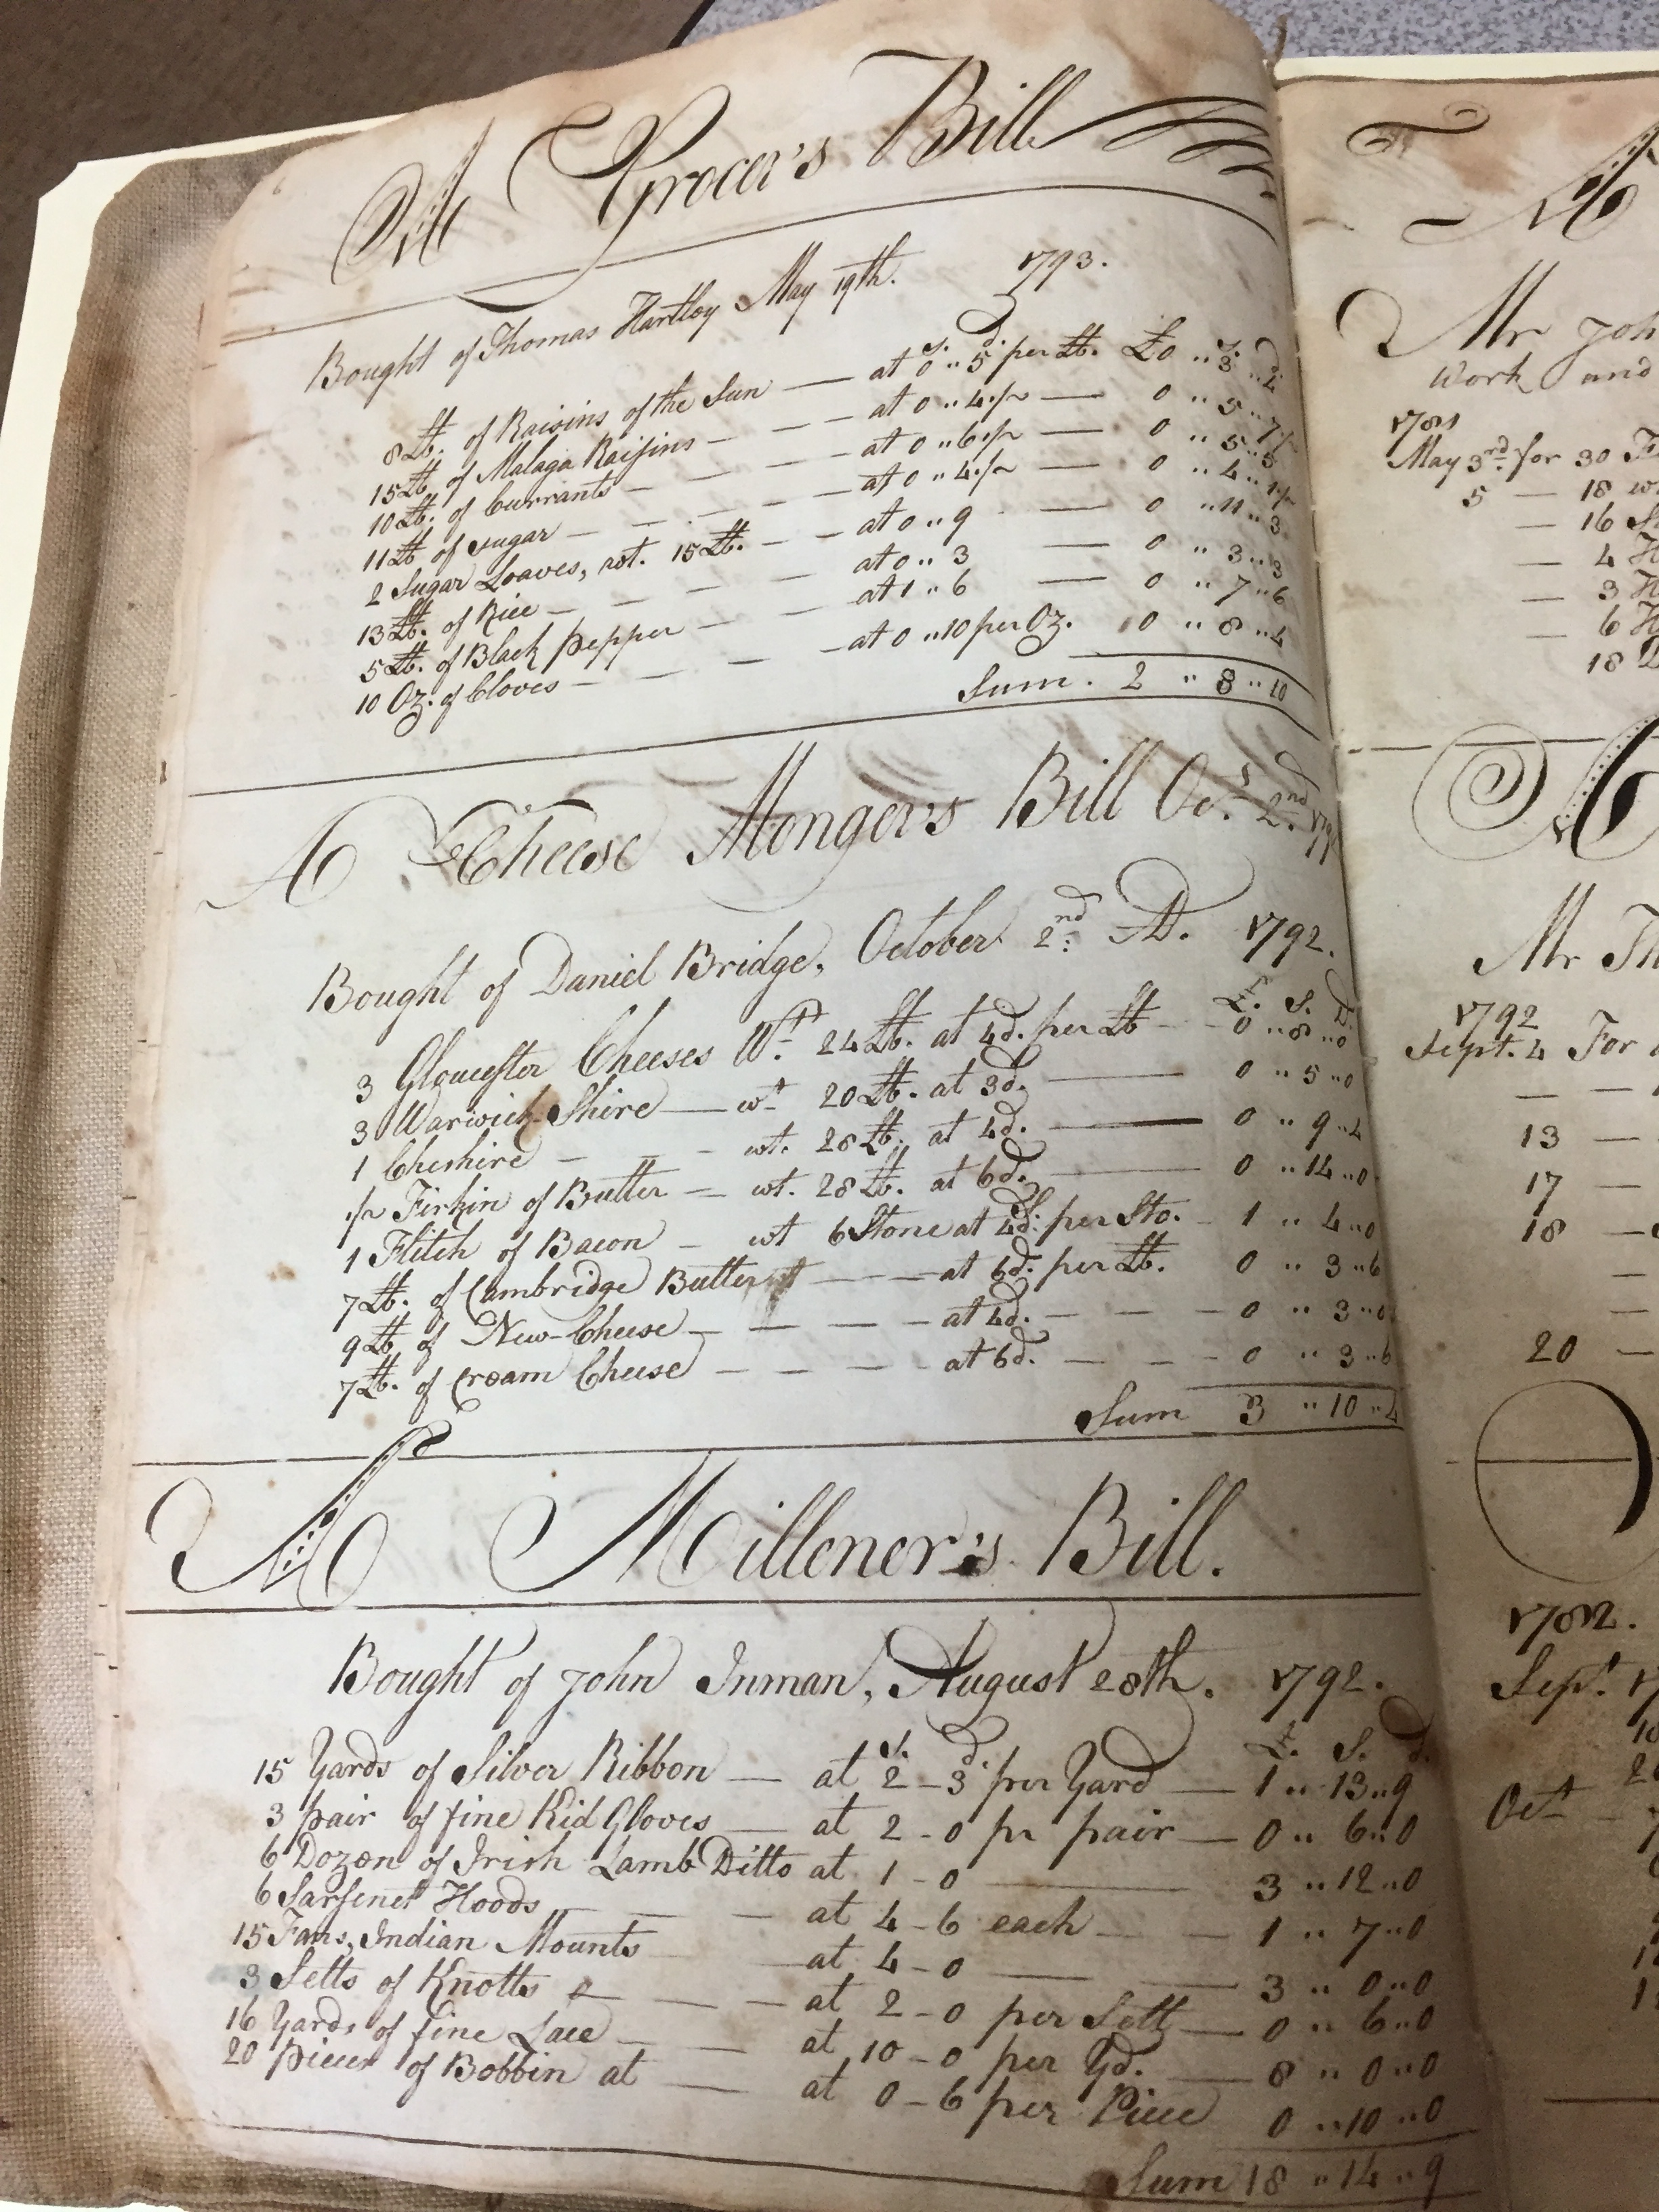 A Grocer's Bill
Bought of Thomas Hartley May 19th. 1793.
s. d. s. d
8 ℔. of Raisins of the Sun — at 0 .. 5 per ℔. £0 .. 3 .. 4
15 ℔. of Malaga Raisins — — — at 0 .. 4 1/2 — 0 .. 5 .. 7 1/2
10 ℔. of Currants — — — — at 0 .. 6 1/2 — 0 .. 5 .. 5
11 ℔ of Sugar — — — — at 0 .. 4 1/2 — 0 .. 4 .. 1 1/2
2 Sugar Loaves, wt. 15 ℔. — — at 0 .. 9 — 0 .. 11 .. 3
13 ℔. of Rice — — — — at 0 .. 3 — 0 .. 3 .. 3
5 ℔. of Black Pepper — — — at 1 .. 6 — 0 .. 7 .. 6
10 Oz. of Cloves — — — at 0 .. 10 per Oz. 0 .. 8 .. 4
Sum. 2 .. 8 .. 10
A Cheese Monger's Bill Oct. 2nd.
Bought of Daniel Bridge, October 2nd. AD. 1792.
£. S. D.
3 Gloucester Cheeses Wt. 24 ℔. at 4d. per ℔ — 0 .. 8 .. 0
3 Warwick-Shire — wt 20 ℔. at 3d. — 0 .. 5 .. 0
1 Cheshire — — — wt. 28 ℔. at 4d. — 0 .. 9 .. 4
1/2 Firkin of Butter — wt. 28 ℔. at 6d. — 0 .. 14 .. 0
1 Flitch of Bacon — wt 6 Stone at 4s. per Sto. — 1 .. 4 .. 0
7 ℔. of Cambridge Butter — — at 6d. per ℔. 0 .. 3 .. 6
9 ℔ of New-Cheese — — — — at 4d. — — — 0 .. 3 .. 0
7 ℔. of Cream Cheese — — — — at 6d. — — — 0 .. 3 .. 6
Sum 3 .. 10 .. 4
A Millener's Bill.
Bought of John Inman, August 28th. 1792.
s. d. £. S. d.
15 Yards of Silver Ribbon — at 2 – 3 per Yard — 1 .. 13 .. 9
3 pair of fine Kid Gloves — at 2 – 0 pr pair — 0 .. 6 .. 0
6 Dozen of Irish Lamb Ditto at 1 – 0 — 3 .. 12 .. 0
6 Sarsenet Hoods — — — at 4 – 6 each — — 1 .. 7 .. 0
15 Fans, Indian Mounts — at 4 – 0 — — 3 .. 0 .. 0
3 Setts of Knotts — — — at 2 – 0 per Sett — 0 .. 6 .. 0
16 Yards of fine Lace — — at 10 – 0 per Yd. — 8 .. 0 .. 0
20 pieces of Bobbin at — at 0 – 6 per Piece 0 .. 10 .. 0
Sum 18 .. 14 .. 9
A
Mr Joh
Work and
1781
May 3rd. for 30
5 — 18
— 16
— 4
— 3
— 6
18
A
Mr Th
1792
Sept. 4 For
13 —
17 —
18 —
20 —
1782.
Sept.
Oct